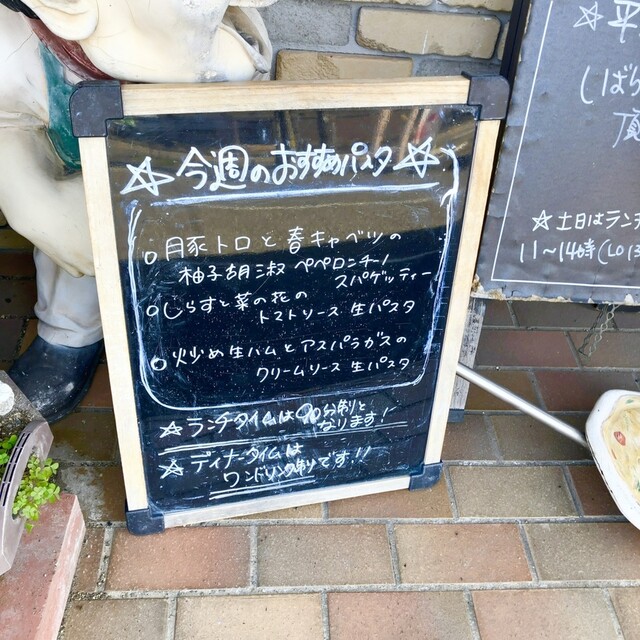 ☆今週のおすすめパスタ☆
○豚トロと春キャベツの
柚子胡椒ペペロンチーノ
スパゲッティー
○しらすと菜の花の
トマトソース 生パスタ
○炒め生ハムとアスパラガスの
クリームソース 生パスタ
☆ランチタイムは90分制と
なります!
☆ディナータイムは
ワンドリンク制です!!
平
しばら
頂
☆土日はランチ
11〜14時(LO13